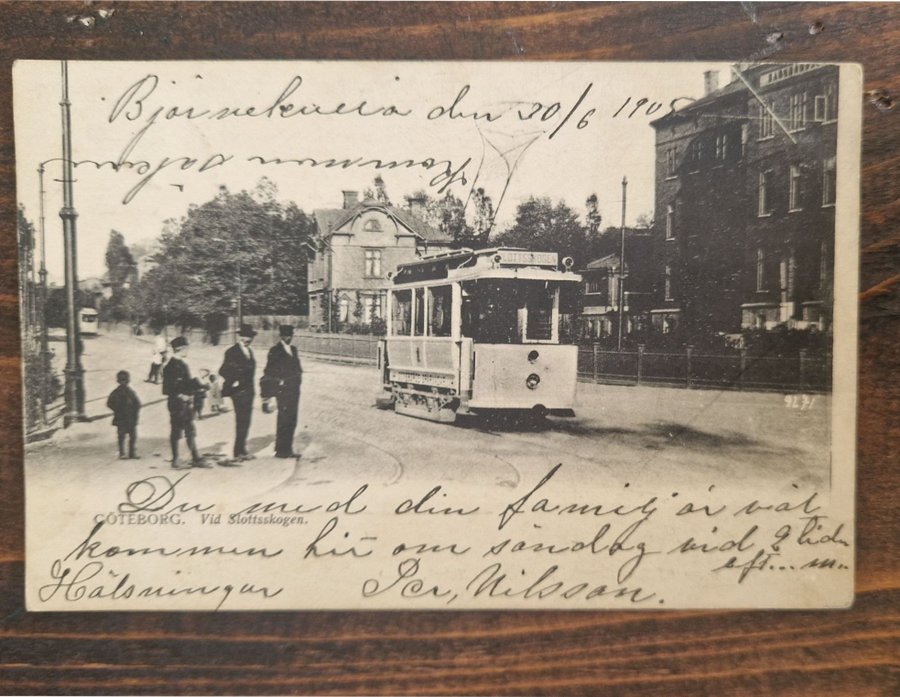 Björnekulla den 30/6 1905
Kommen
SLOTTSSKOGEN
9271
Du med din familj är väl
GÖTEBORG. Vid Slottsskogen.
kommen hit om söndag vid 2 tiden
eft... m..
Hälsningar Per, Nilsson.